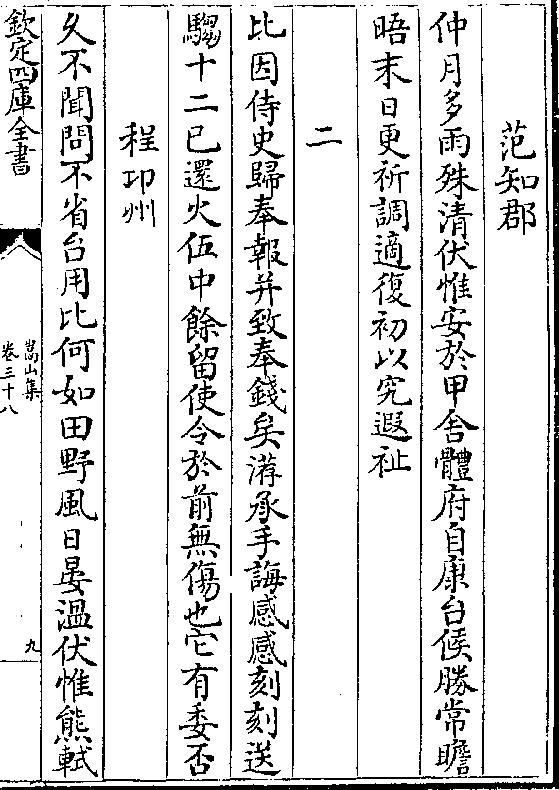 范知郡
仲月多雨殊清伏惟安於甲舍體府自康台候勝常瞻
晤末日更祈調適復初以究遐祉
二
比因侍史歸奉報并致奉錢矣洊承手誨感感刻刻送
騶十二已還火伍中餘留使令於前無傷也它有委否
程卭州
久不聞問不省台用比何如田野風日晏溫伏惟熊軾
欽定四庫全書
嵩山集
卷三十八
九